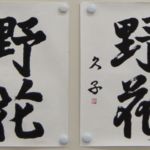 野花
久子
野花